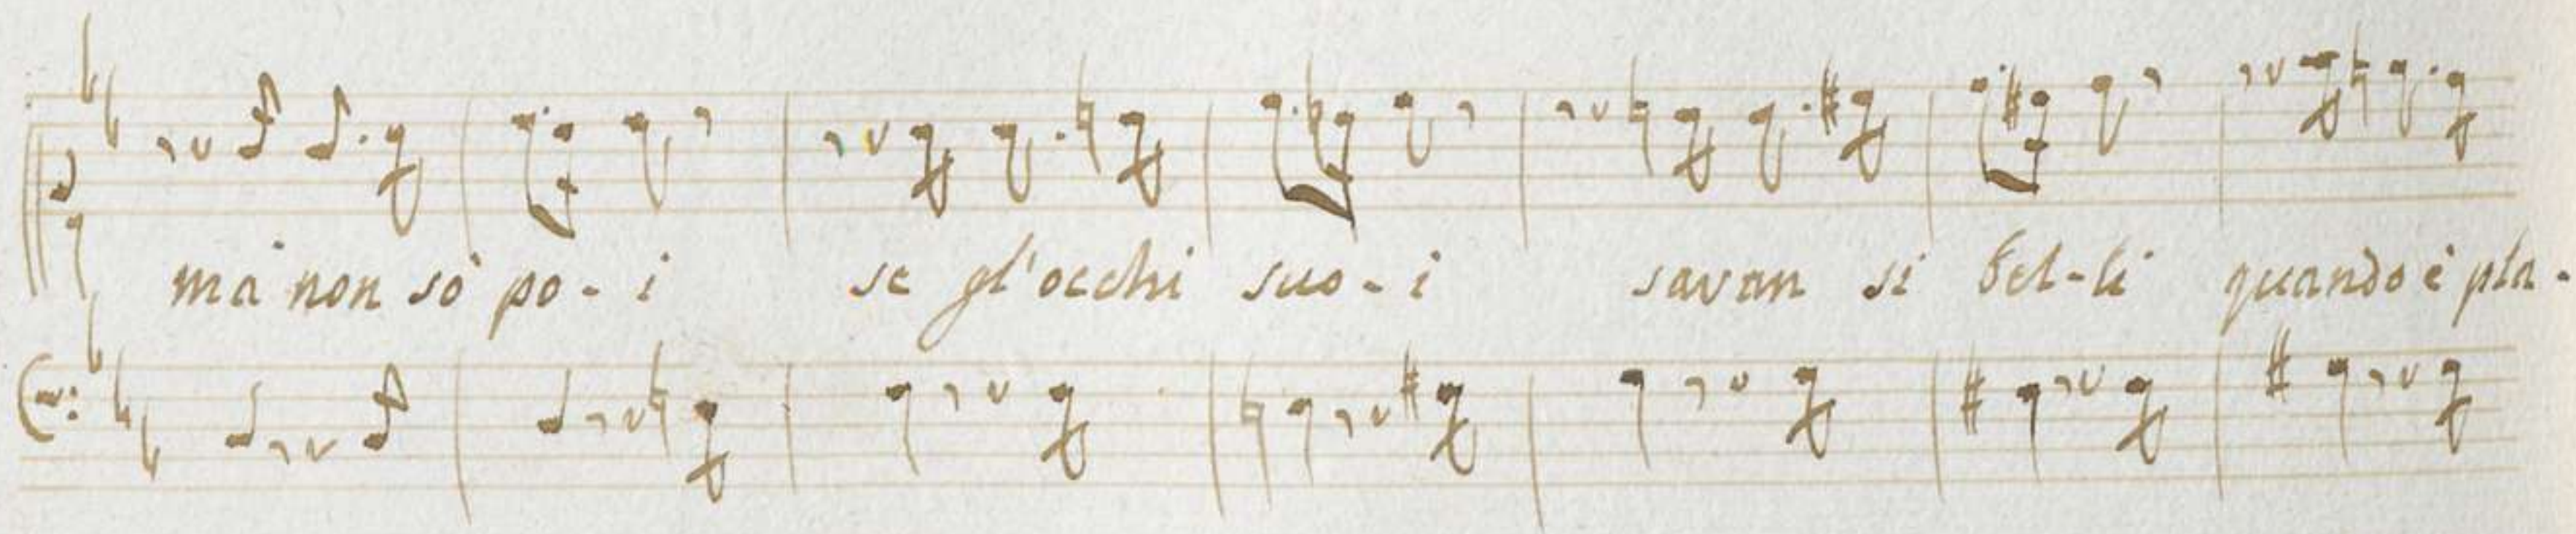 ma non sò po - i se gl'occhi suo - i savan si bel - li quando è pla -